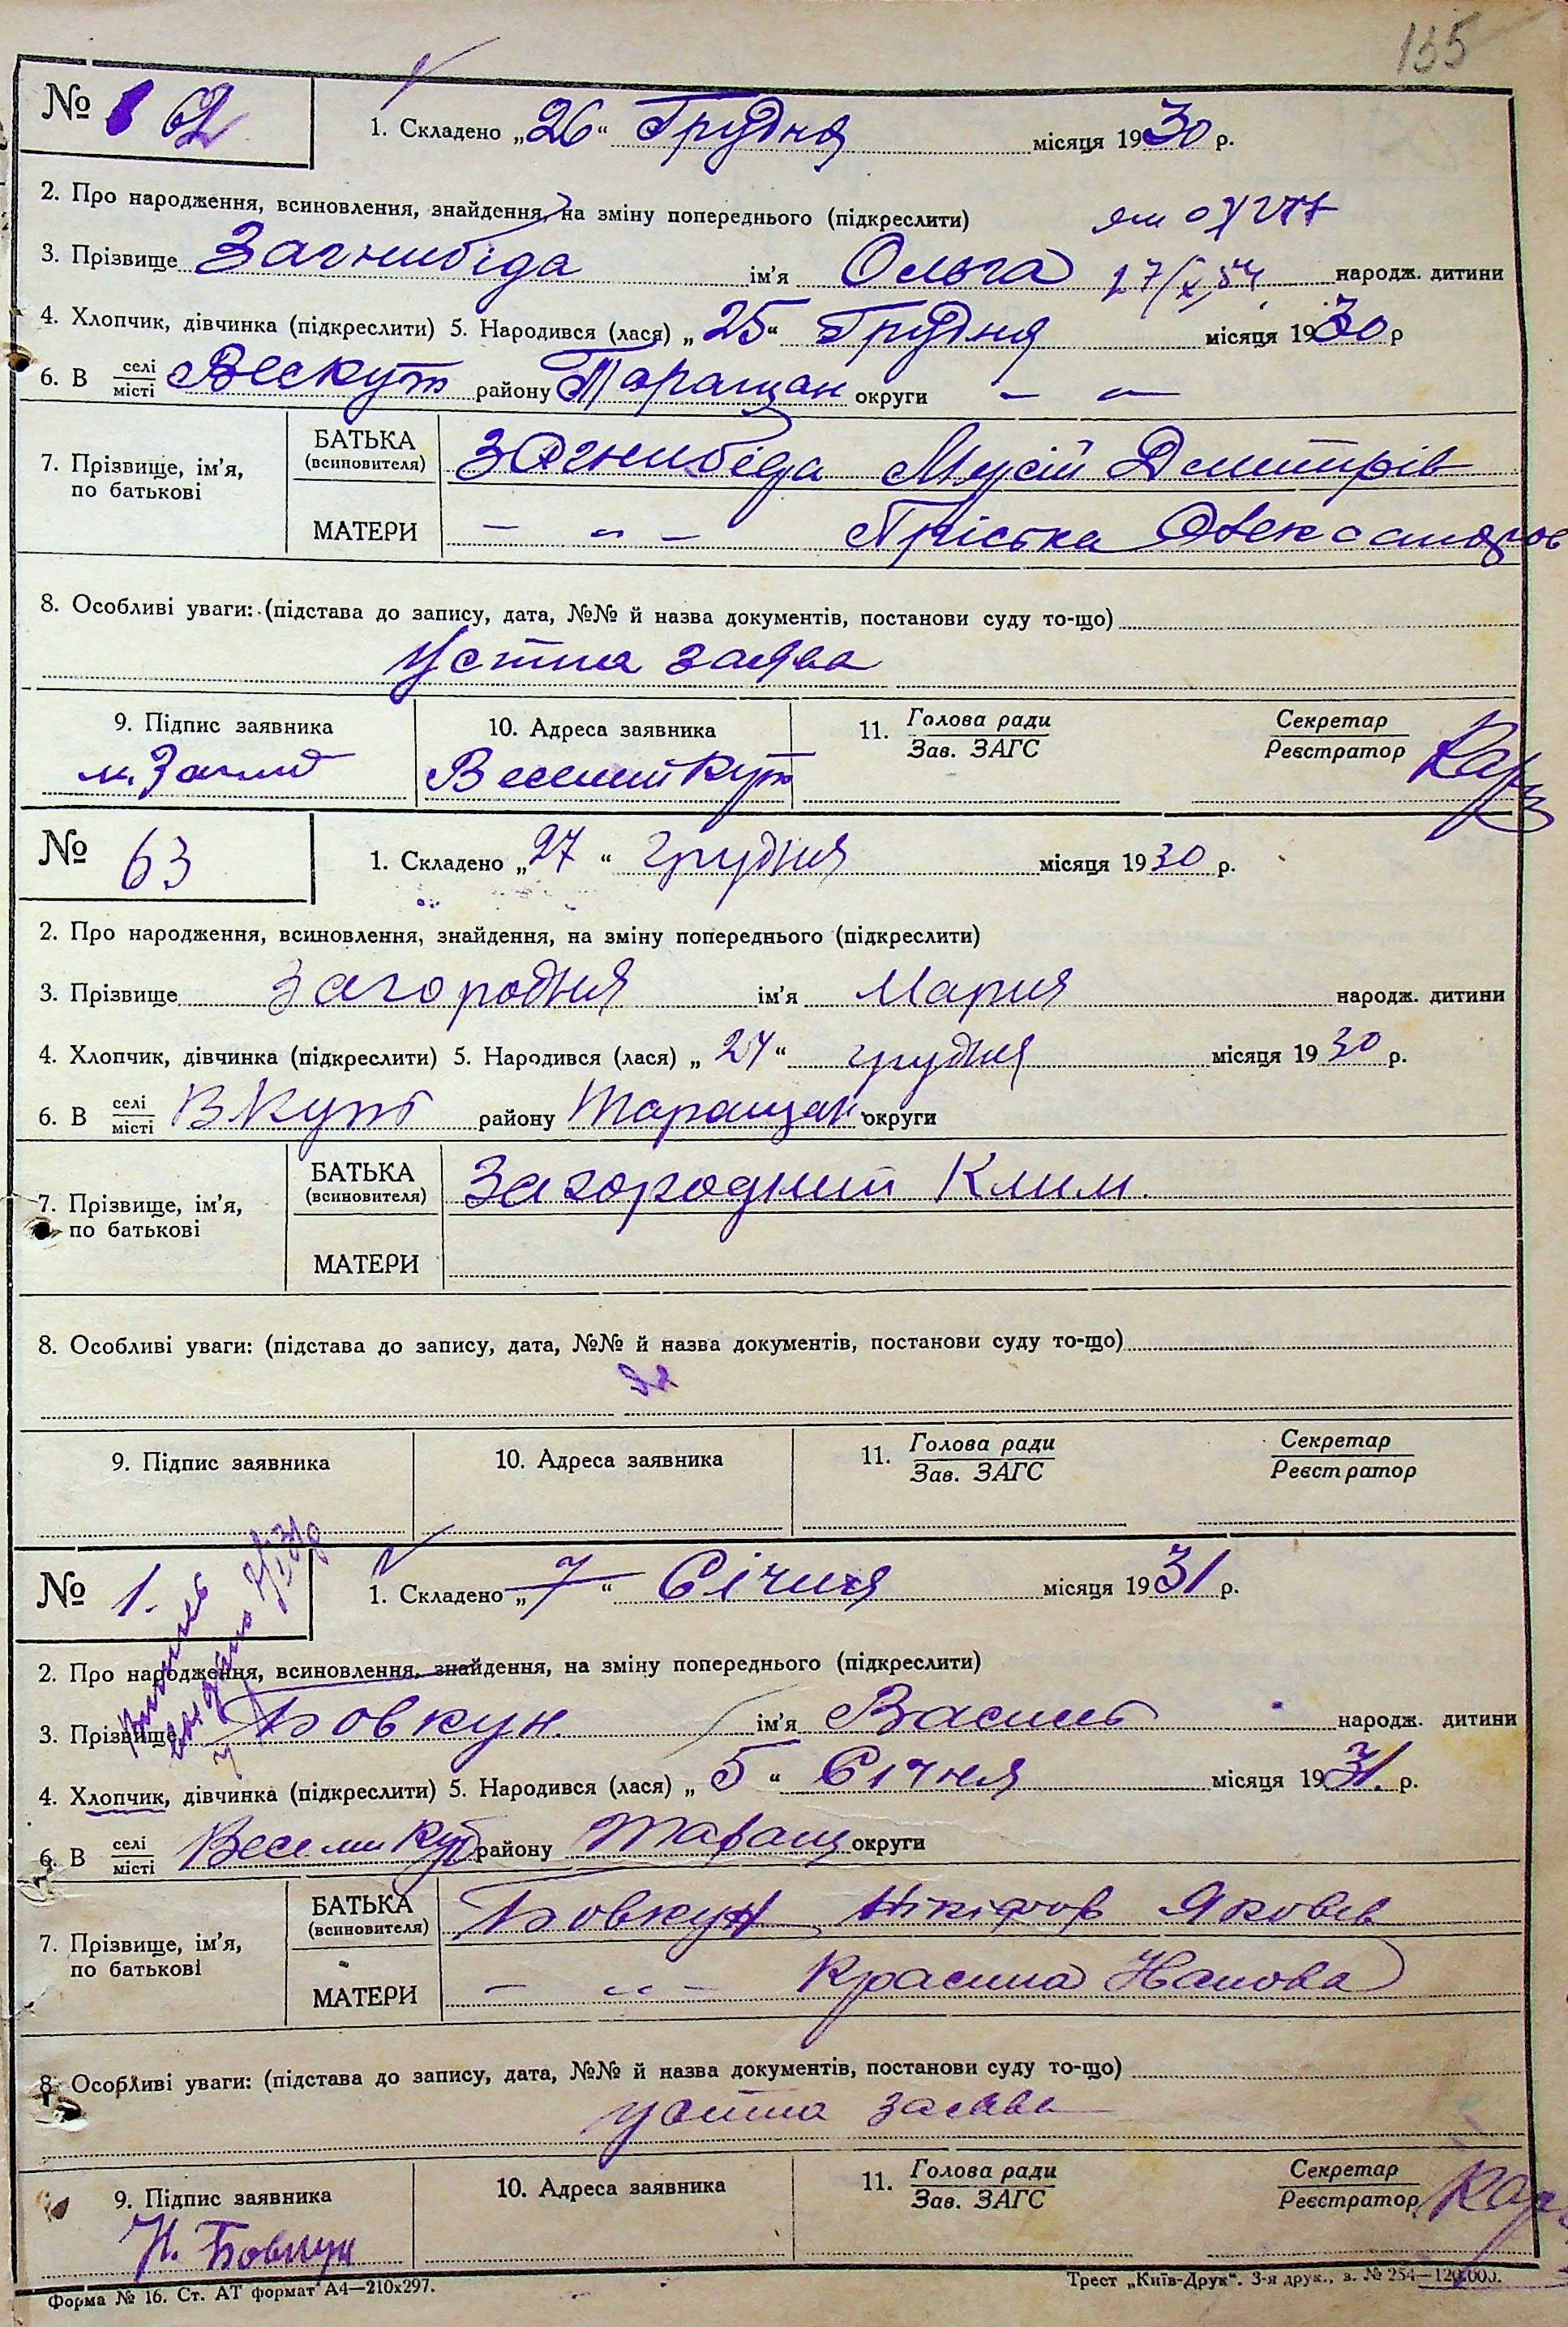 135
№ 62
1. Складено „26“ Грудня місяця 1930 р.
2. Про народження, всиновлення, знайдення, на зміну попереднього (підкреслити)
3. Прізвище Загнибіда ім'я Ольга 27/X 54 народж. дитини
4. Хлопчик, дівчинка (підкреслити) 5. Народився (лася) „25“ Грудня місяця 1930 р
6. В селі/місті Вес Кут району Таращан округи — „ —
7. Прізвище, ім'я, по батькові
БАТЬКА (всиновителя) Загнибіда Мусій Дмитрів
МАТЕРИ — „ — Пріська Олександров
8. Особливі уваги: (підстава до запису, дата, №№ й назва документів, постанови суду то-що)
Устна заява
9. Підпис заявника 10. Адреса заявника 11. Голова ради/Зав. ЗАГС Секретар/Реєстратор
м. Загниб Веселий Кут
№ 63
1. Складено „27“ грудня місяця 1930 р.
2. Про народження, всиновлення, знайдення, на зміну попереднього (підкреслити)
3. Прізвище Загородня ім'я Мария народж. дитини
4. Хлопчик, дівчинка (підкреслити) 5. Народився (лася) „24“ грудня місяця 1930 р.
6. В селі/місті В Кут району Таращан округи
7. Прізвище, ім'я, по батькові
БАТЬКА (всиновителя) Загородний Клим.
МАТЕРИ
8. Особливі уваги: (підстава до запису, дата, №№ й назва документів, постанови суду то-що)
9. Підпис заявника 10. Адреса заявника 11. Голова ради/Зав. ЗАГС Секретар/Реєстратор
№ 1.
1. Складено „7“ Січня місяця 1931 р.
2. Про народження, всиновлення, знайдення, на зміну попереднього (підкреслити)
3. Прізвище Бовкун ім'я Василь народж. дитини
4. Хлопчик, дівчинка (підкреслити) 5. Народився (лася) „5“ Січня місяця 1931. р.
6. В селі/місті Весели Кут району Таращ округи
7. Прізвище, ім'я, по батькові
БАТЬКА (всиновителя) Бовкун Нікіфор Яковів
МАТЕРИ — „ —
8. Особливі уваги: (підстава до запису, дата, №№ й назва документів, постанови суду то-що)
устна заява
9. Підпис заявника 10. Адреса заявника 11. Голова ради/Зав. ЗАГС Секретар/Реєстратор
Н. Бовкун
Форма № 16. Ст. АТ формат А4—210х297.
Трест „Київ-Друк“. 3-я друк., з. № 254—120.000.